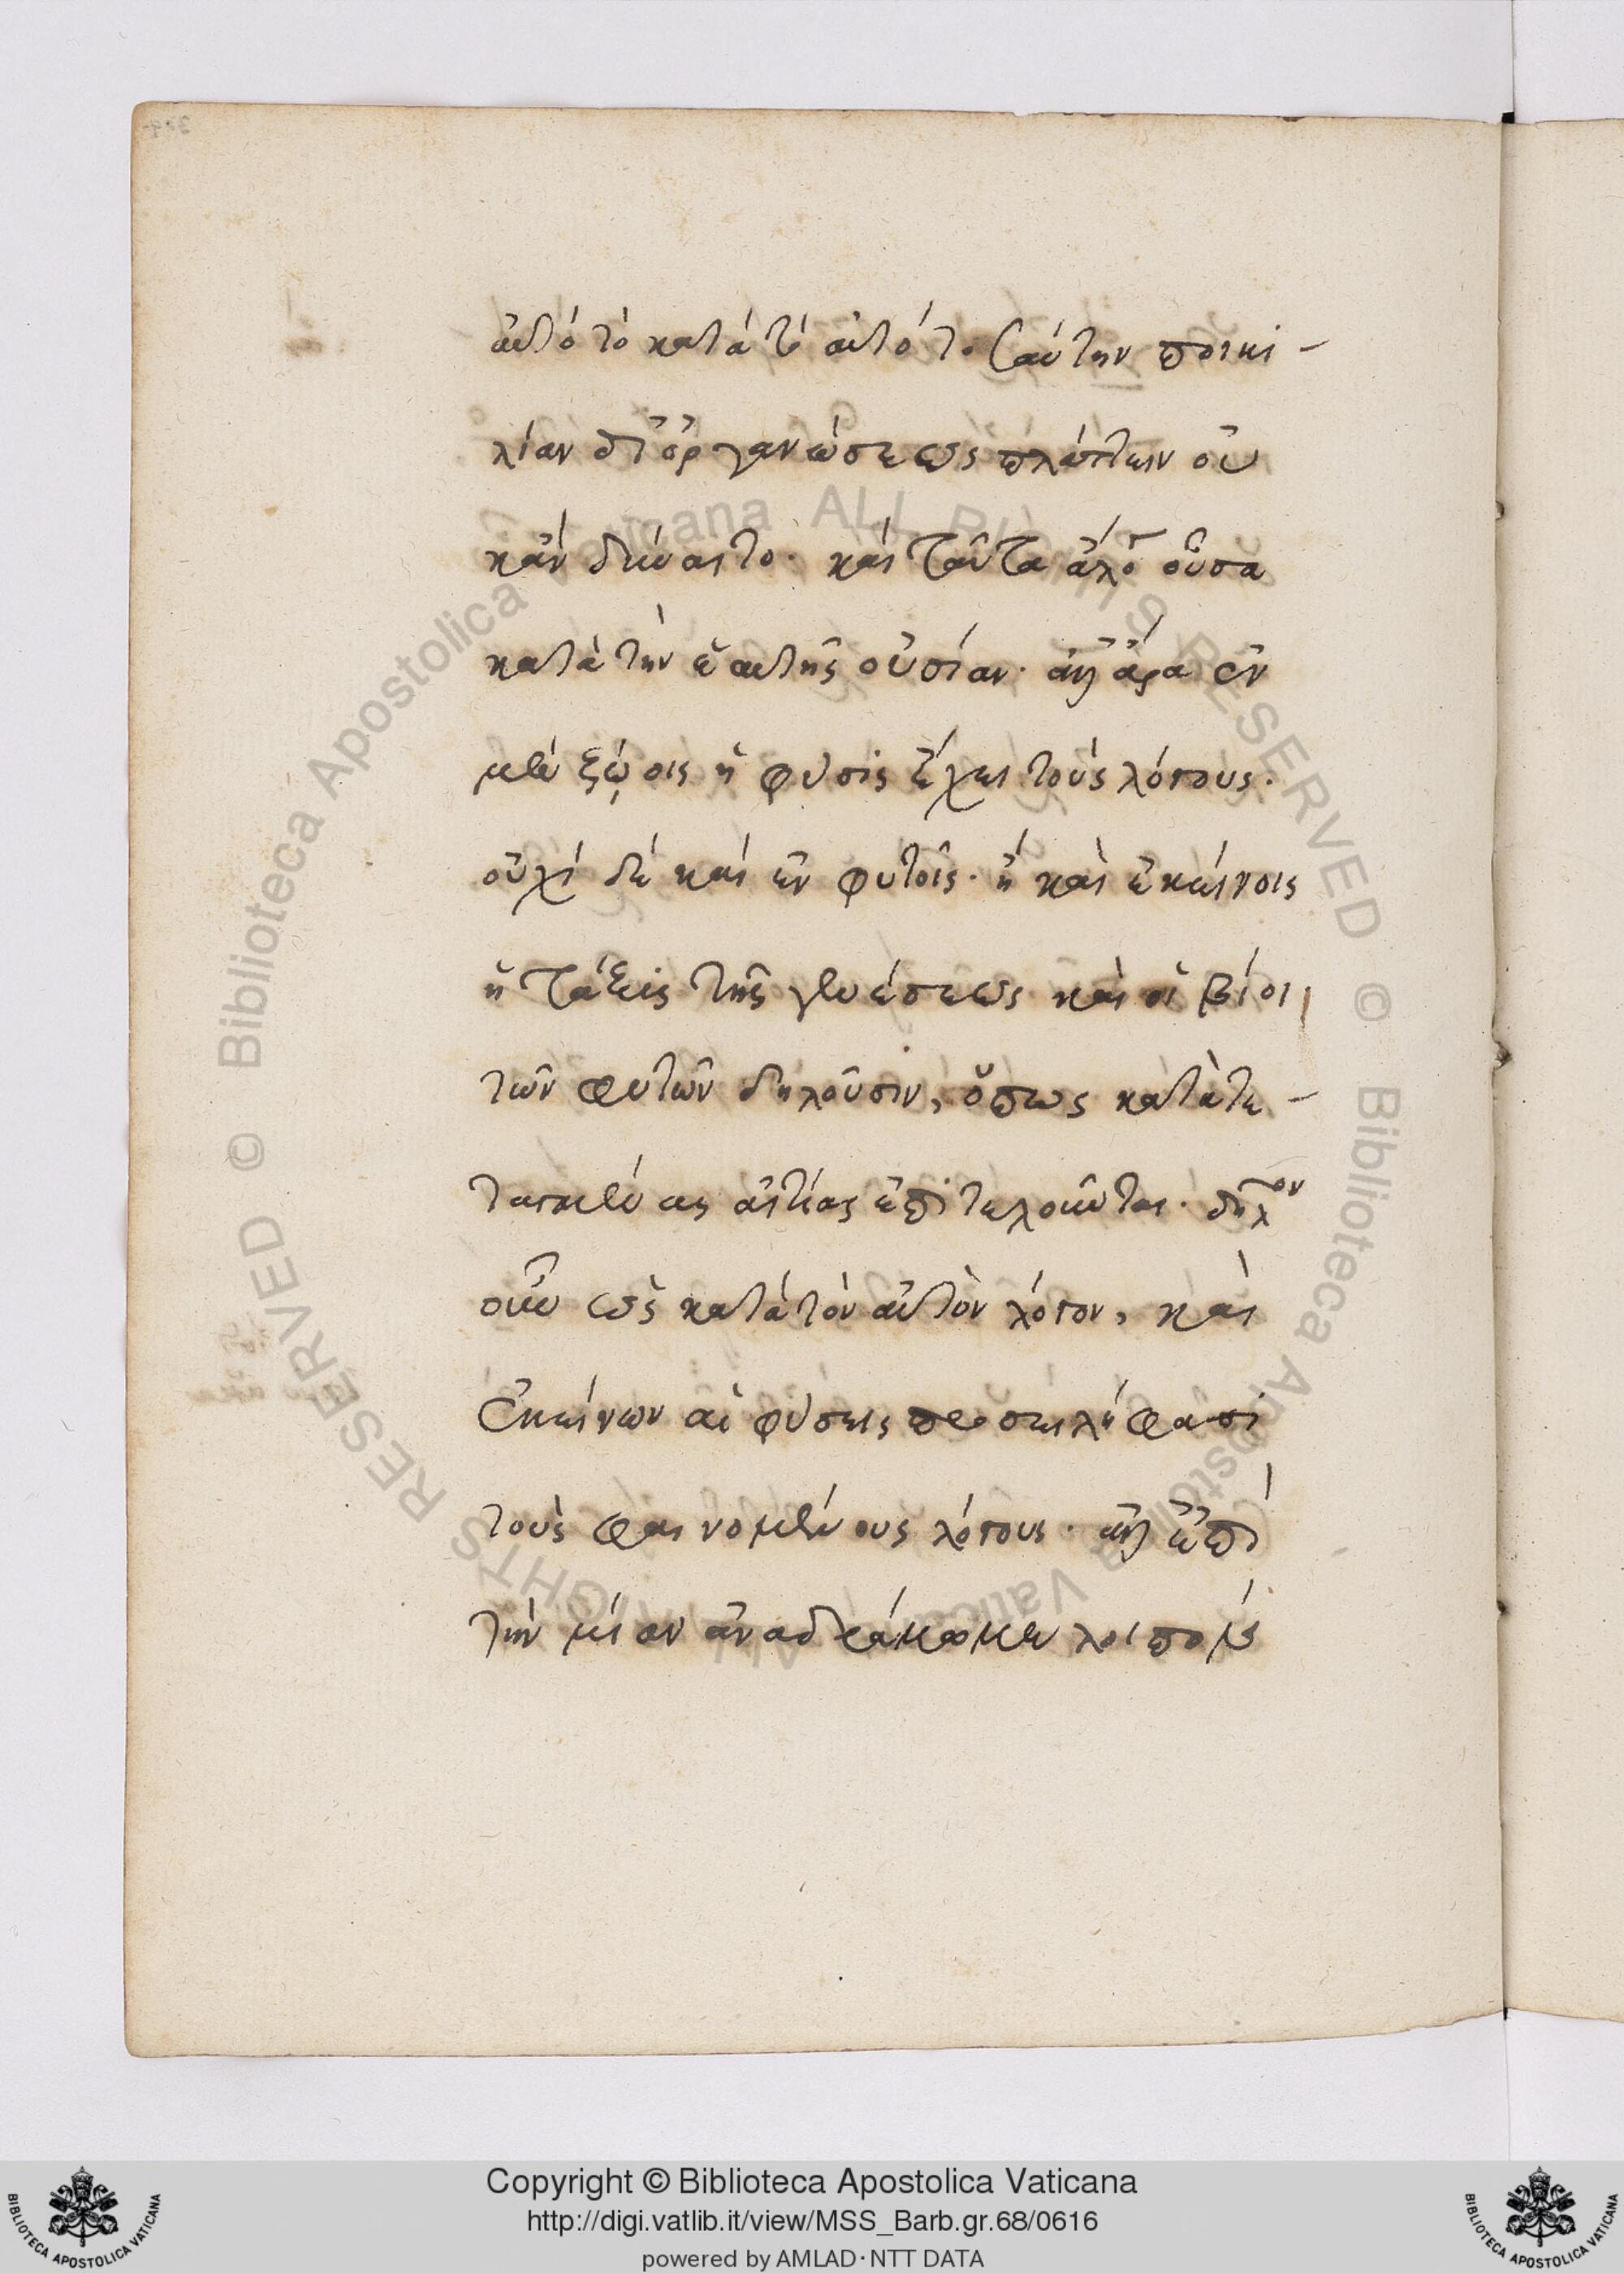 αὐτό τὸ κατά τὸ αὐτό τοσαύτην ποικι-
λίαν διοργανώσεως πλάττειν οὐ
κἂν δύναιτο· καὶ ταῦτα ἄλο οὖσα
κατὰ τὴν ἑαυτῆς οὐσίαν· ἀλλ' ἄρα ἐν
μὲν ζώοις ἡ φύσις ἔχει τοὺς λόγους·
οὐχί δέ καί ἐν φυτοῖς· ἤ καὶ ἐκείνοις
ἡ τάξις τῆς γενέσεως καὶ οἱ βίοι
τῶν φυτῶν δηλοῦσιν, ὅπως κατὰ τε-
ταγμένας αἰτίας ἐπιτελοῦνται· δῆλον
οὖν ὡς κατὰ τὸν αὐτὸν λόγον, καὶ
ἐκείνων αἱ φύσεις προσειλήφασι
τοὺς φαινομένους λόγους· ἀλλ' ἐπὶ
τὴν μίαν ἀναδράμωμεν λοιπὸν
Copyright © Biblioteca Apostolica Vaticana
http://digi.vatlib.it/view/MSS_Barb.gr.68/0616
powered by AMLAD·NTT DATA